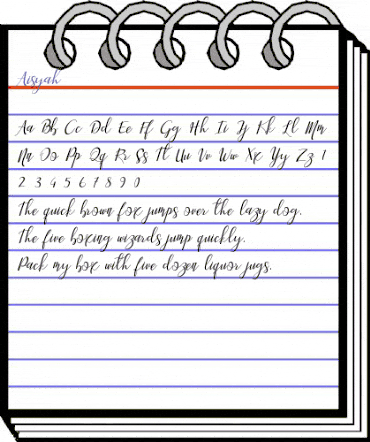 Aisyah
Aa Bb Cc Dd Ee Ff Gg Hh Ii Jj Kk Ll Mm
Nn Oo Pp Qq Rr Ss Tt Uu Vv Ww Xx Yy Zz 1
2 3 4 5 6 7 8 9 0
The quick brown fox jumps over the lazy dog.
The five boxing wizards jump quickly.
Pack my box with five dozen liquor jugs.